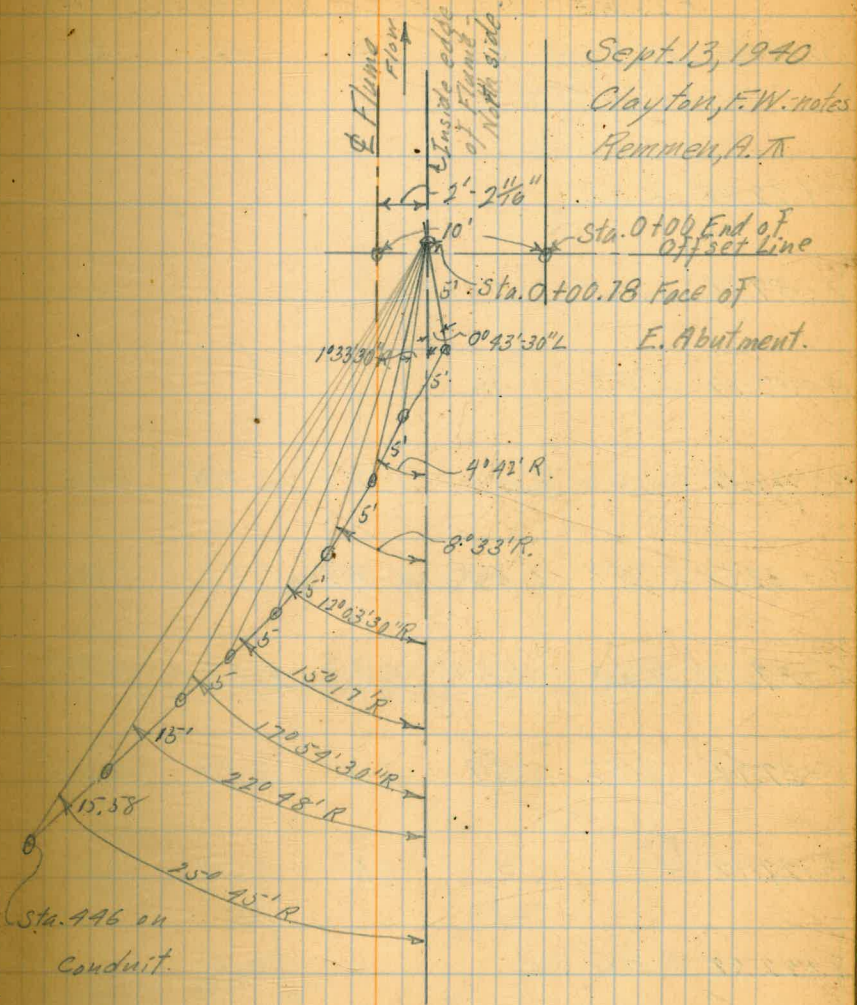 Sept. 13, 1940
Clayton, F.W. - notes
Remmen, A. ⊼
℄ Flume
Flow
Inside edge
of Flume -
North side.
2'-2 11/16"
10'
Sta. 0+00 End of
Offset Line
5'
Sta. 0+00.78 Face of
E. Abutment.
0°43'-30" L
1°33'30"R
5'
5'
4°42' R.
5'
8°33' R.
5'
12°03'30"R
5
15°17' R
5
17°54'30"R
15'
22°48' R
15.58
25°45' R
Sta. 446 on
Conduit.